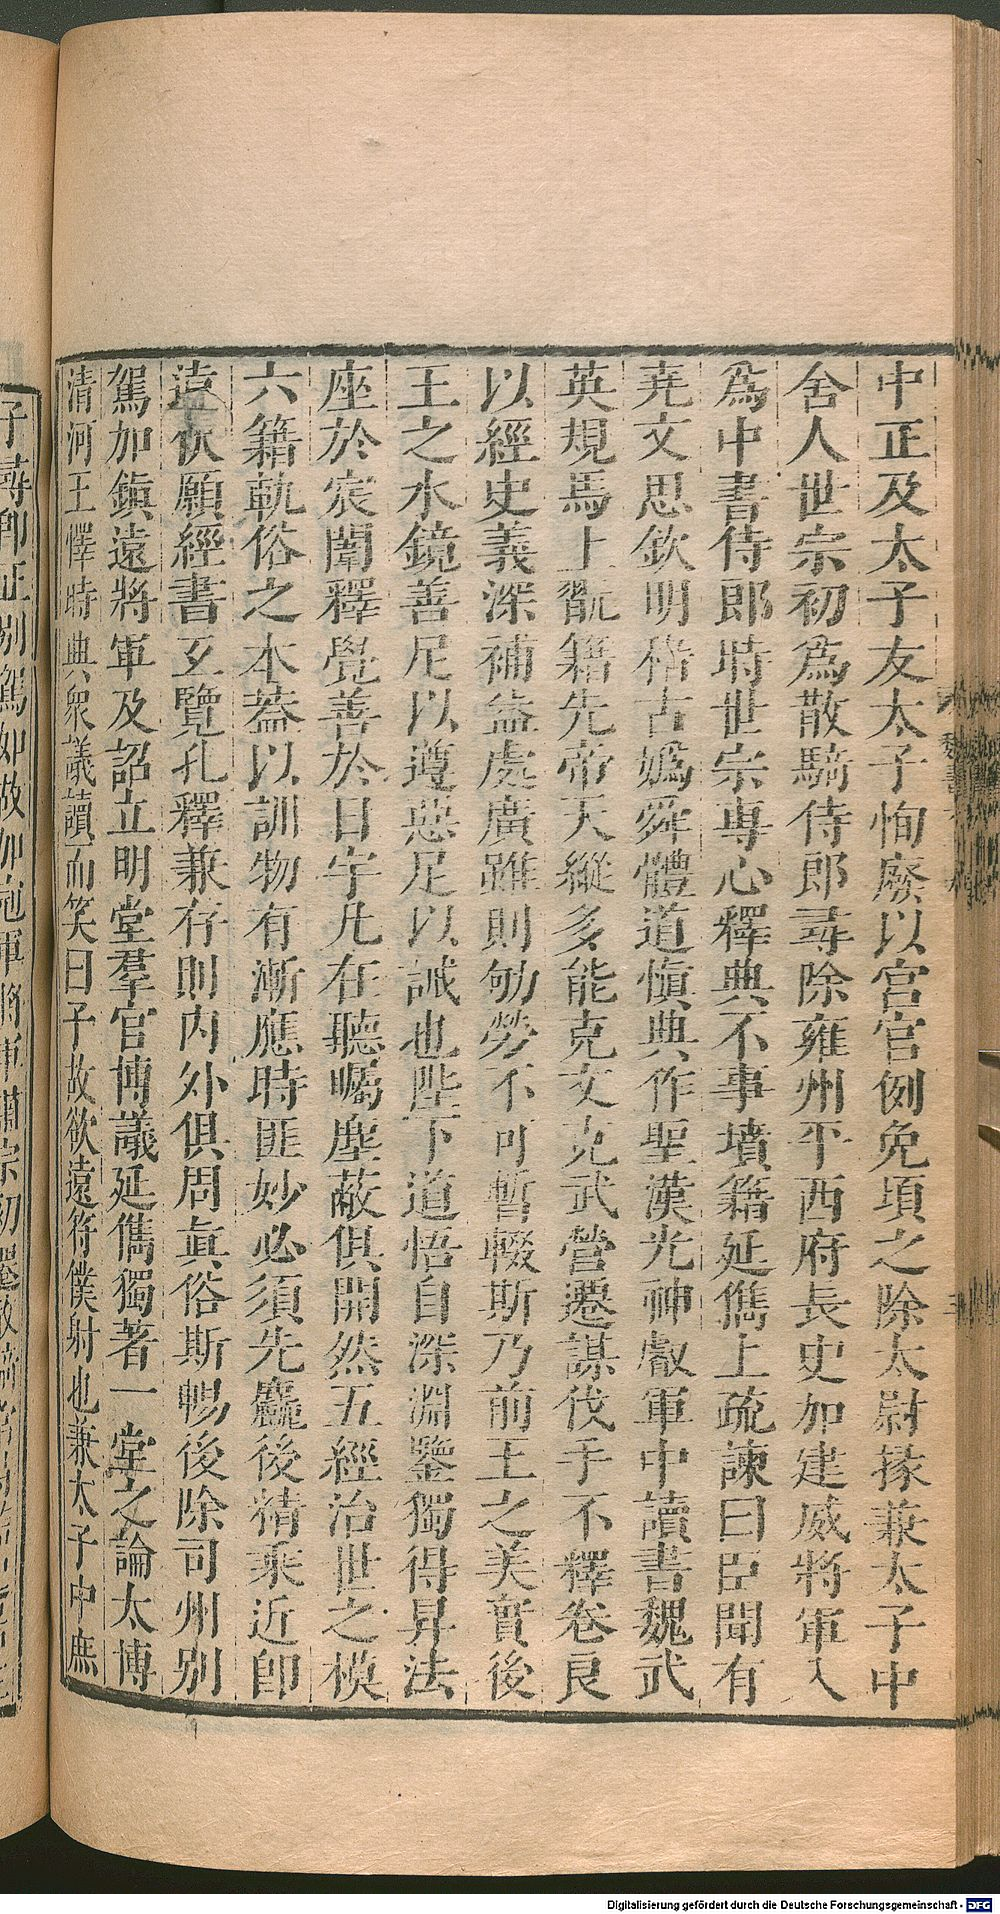 中正及太子友太子恂廢以宮官例免頃之除太尉掾兼太子中
舍人世宗初爲散騎侍郎尋除雍州平西府長史加建威將軍入
爲中書侍郎時世宗專心釋典不事墳籍延儁上疏諫曰臣聞有
堯文思欽明稽古嬀舜體道愼典作聖漢光神叡軍中讀書魏武
英規馬上翫籍先帝天縱多能克文克武營遷謀伐手不釋卷良
以經史義深補益處廣雖則劬勞不可暫輟斯乃前王之美實後
王之水鏡善足以遵惡足以誡也陛下道悟自深淵鑒獨得昇法
座於宸闈釋覺善於日宇凡在聽矚塵蔽俱開然五經治世之模
六籍軌俗之本蓋以訓物有漸應時匪妙必須先麤後精乘近卽
遠伏願經書互覽孔釋兼存則內外俱周眞俗斯暢後除司州別
駕加鎭遠將軍及詔立明堂羣官博議延儁獨著一堂之論太博
清河王懌時典眾議讀而笑曰子故欲遠符僕射也兼太子中庶
子尋卽正別駕如故加冠軍將軍肅宗初遷散騎常
魏書
Digitalisierung gefördert durch die Deutsche Forschungsgemeinschaft - DFG